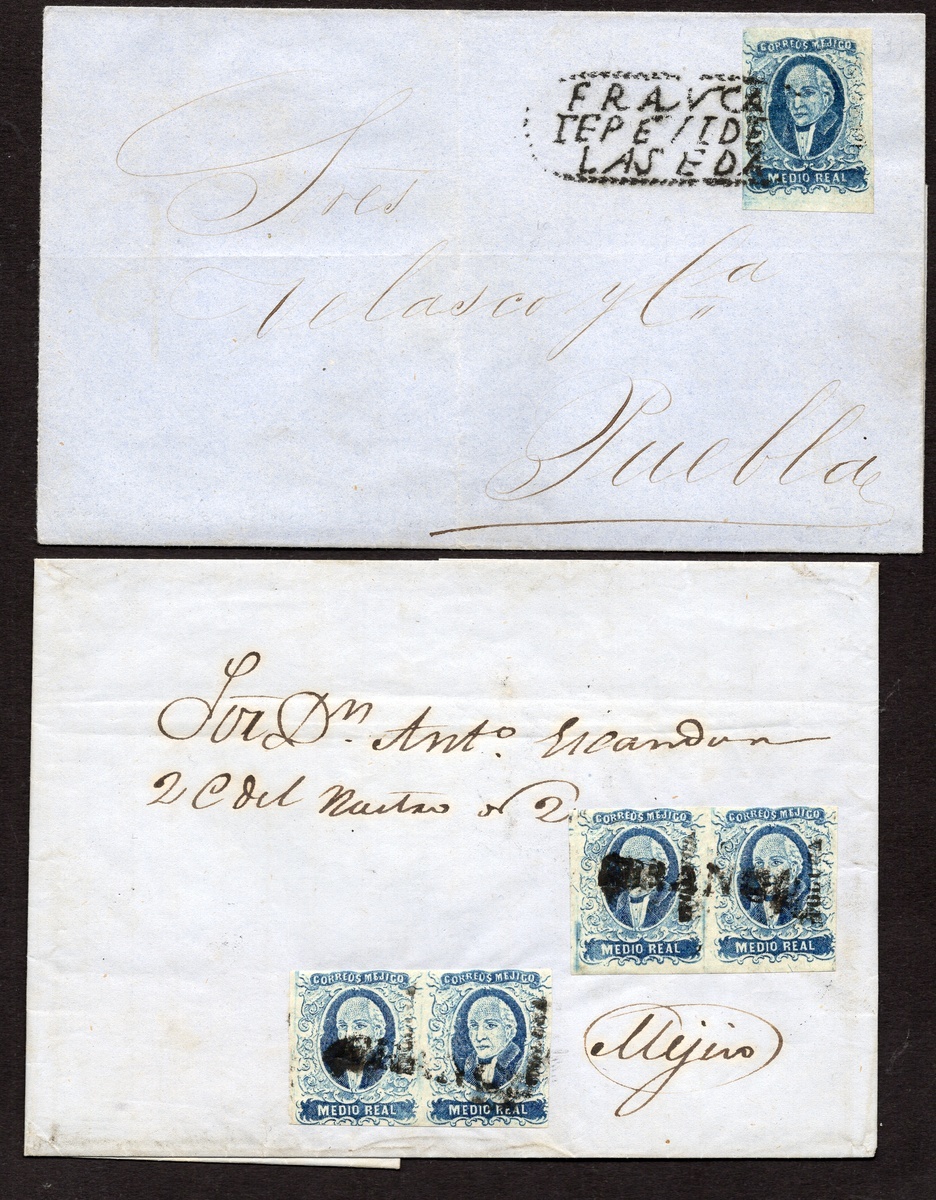 CORREOS MEJICO
MEDIO REAL
FRANCA
TEPEJIDE
LASEDA
Sres
Velasco y Cía
Puebla
Sor Dn. Anto. Escandon
2 C del Rastro No 2
CORREOS MEJICO CORREOS MEJICO
FRANCO
MEDIO REAL MEDIO REAL
CORREOS MEJICO CORREOS MEJICO
FRANCO
MEDIO REAL MEDIO REAL
Mejico